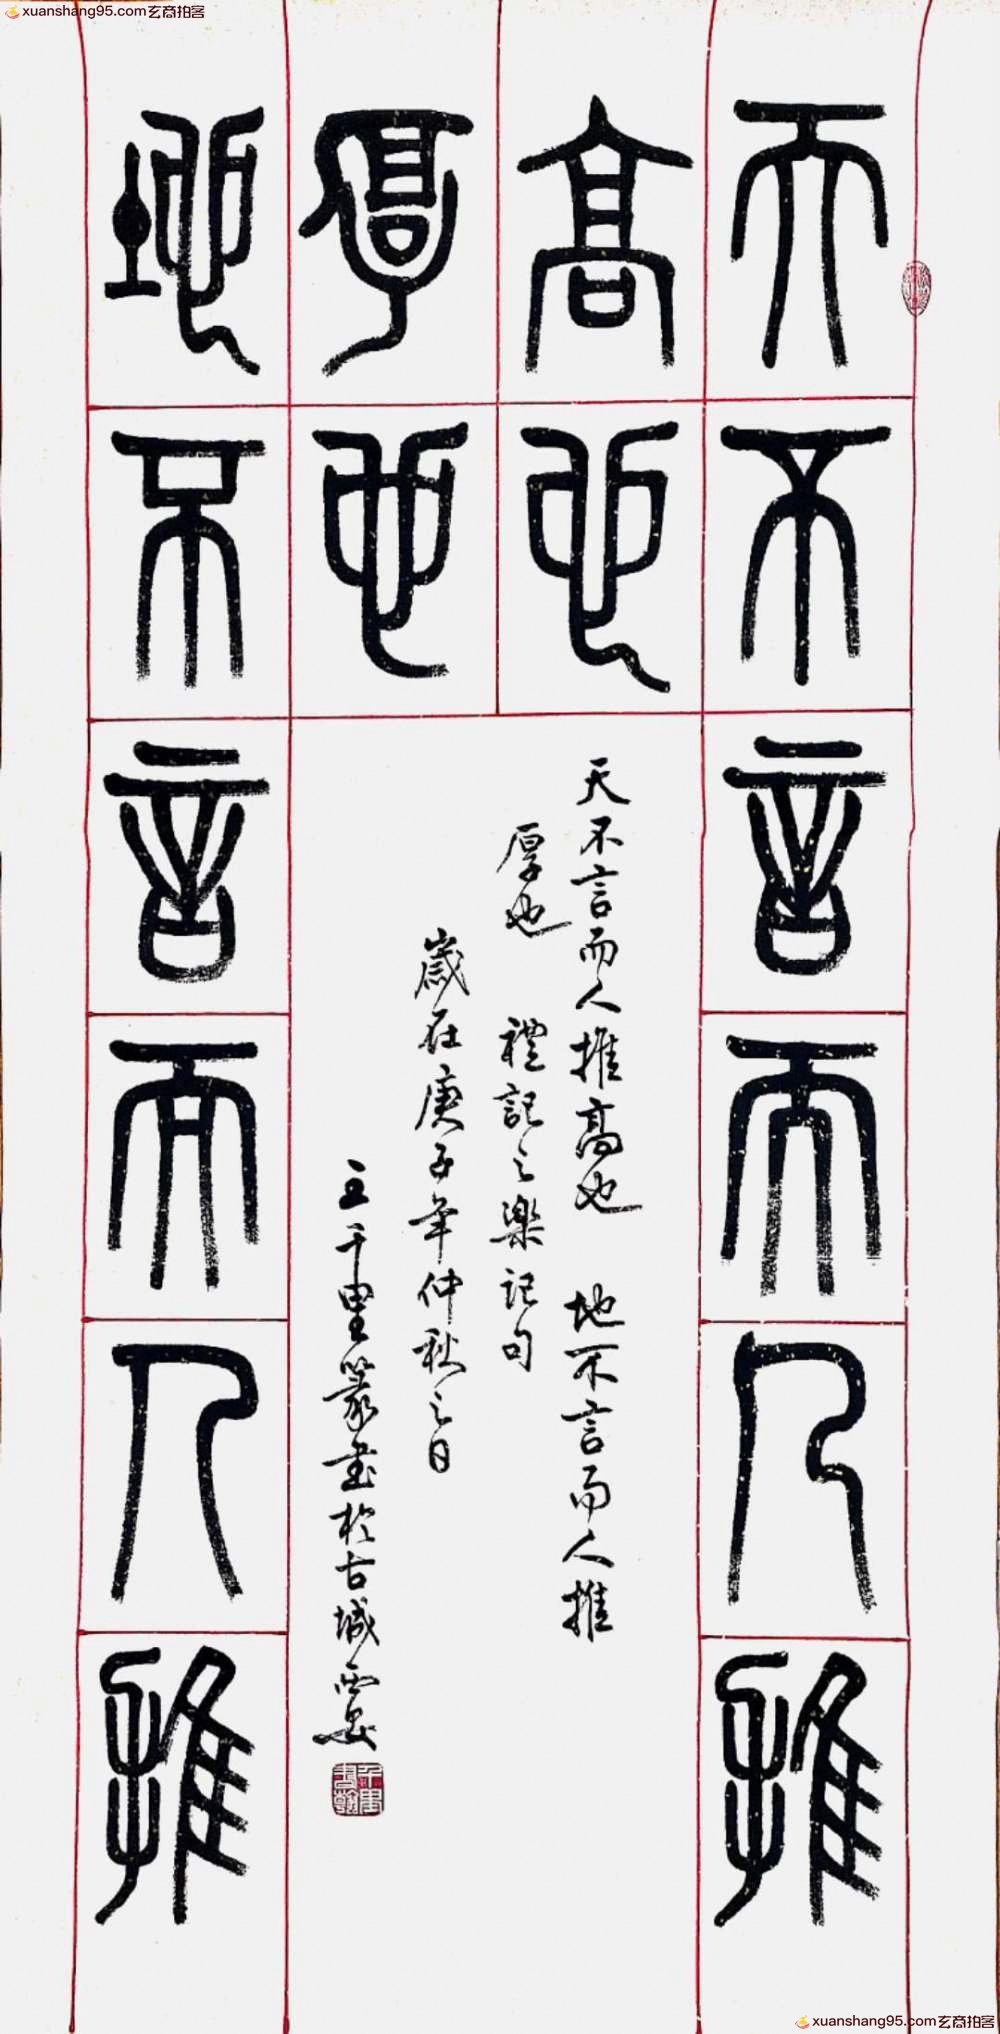 xuanshang95.com玄商拍客
天不言而人推
高也
地不言而人推
厚也
天不言而人推高也 地不言而人推
厚也 禮記之樂記句
歲在庚子年仲秋之日
王千里篆書於古城西安
xuanshang95.com玄商拍客